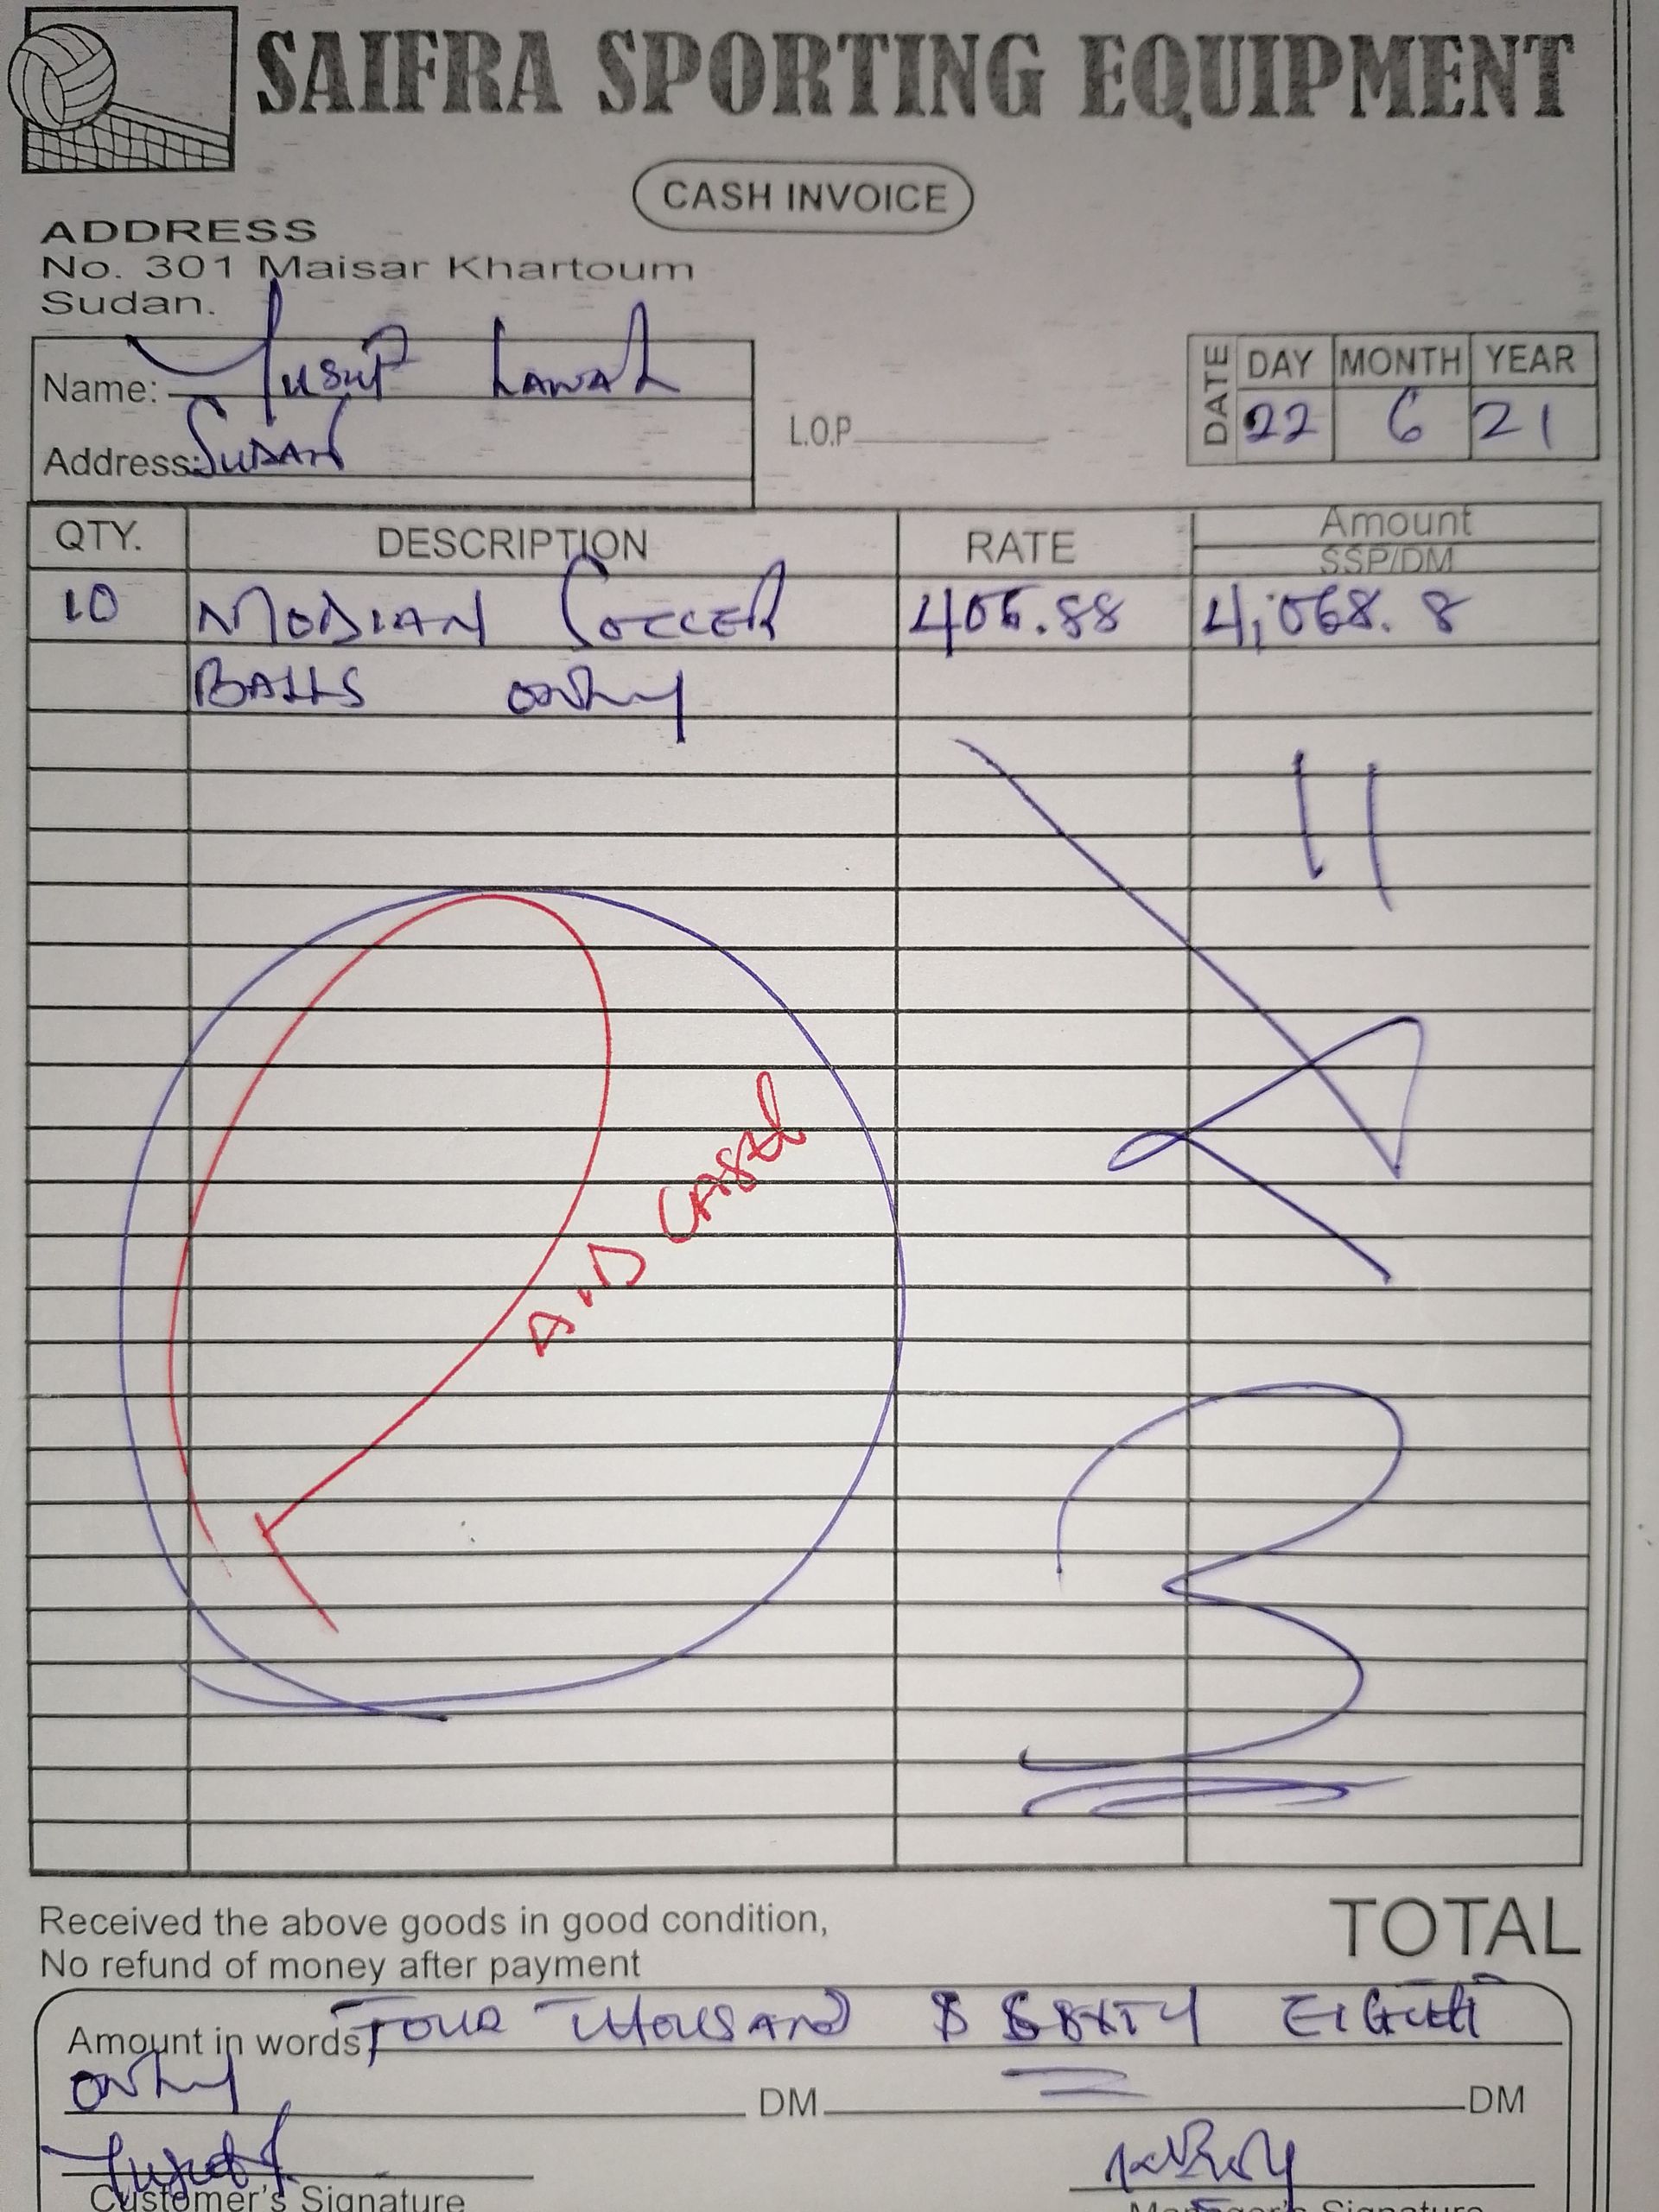 SAIFRA SPORTING EQUIPMENT
CASH INVOICE
ADDRESS
No. 301 Maisar Khartoum
Sudan.
Name: Yusuf Lawal
Address: SUDAN
L.O.P
DATE DAY MONTH YEAR
22 6 21
QTY. DESCRIPTION RATE Amount
SSP/DM
10 MODIAN SOCCER 406.88 4,068.8
BALLS only
AND CASH
Received the above goods in good condition,
No refund of money after payment
TOTAL
Amount in words FOUR THOUSAND & SIXTY EIGHT
only DM DM
Customer's Signature
Manager's Signature